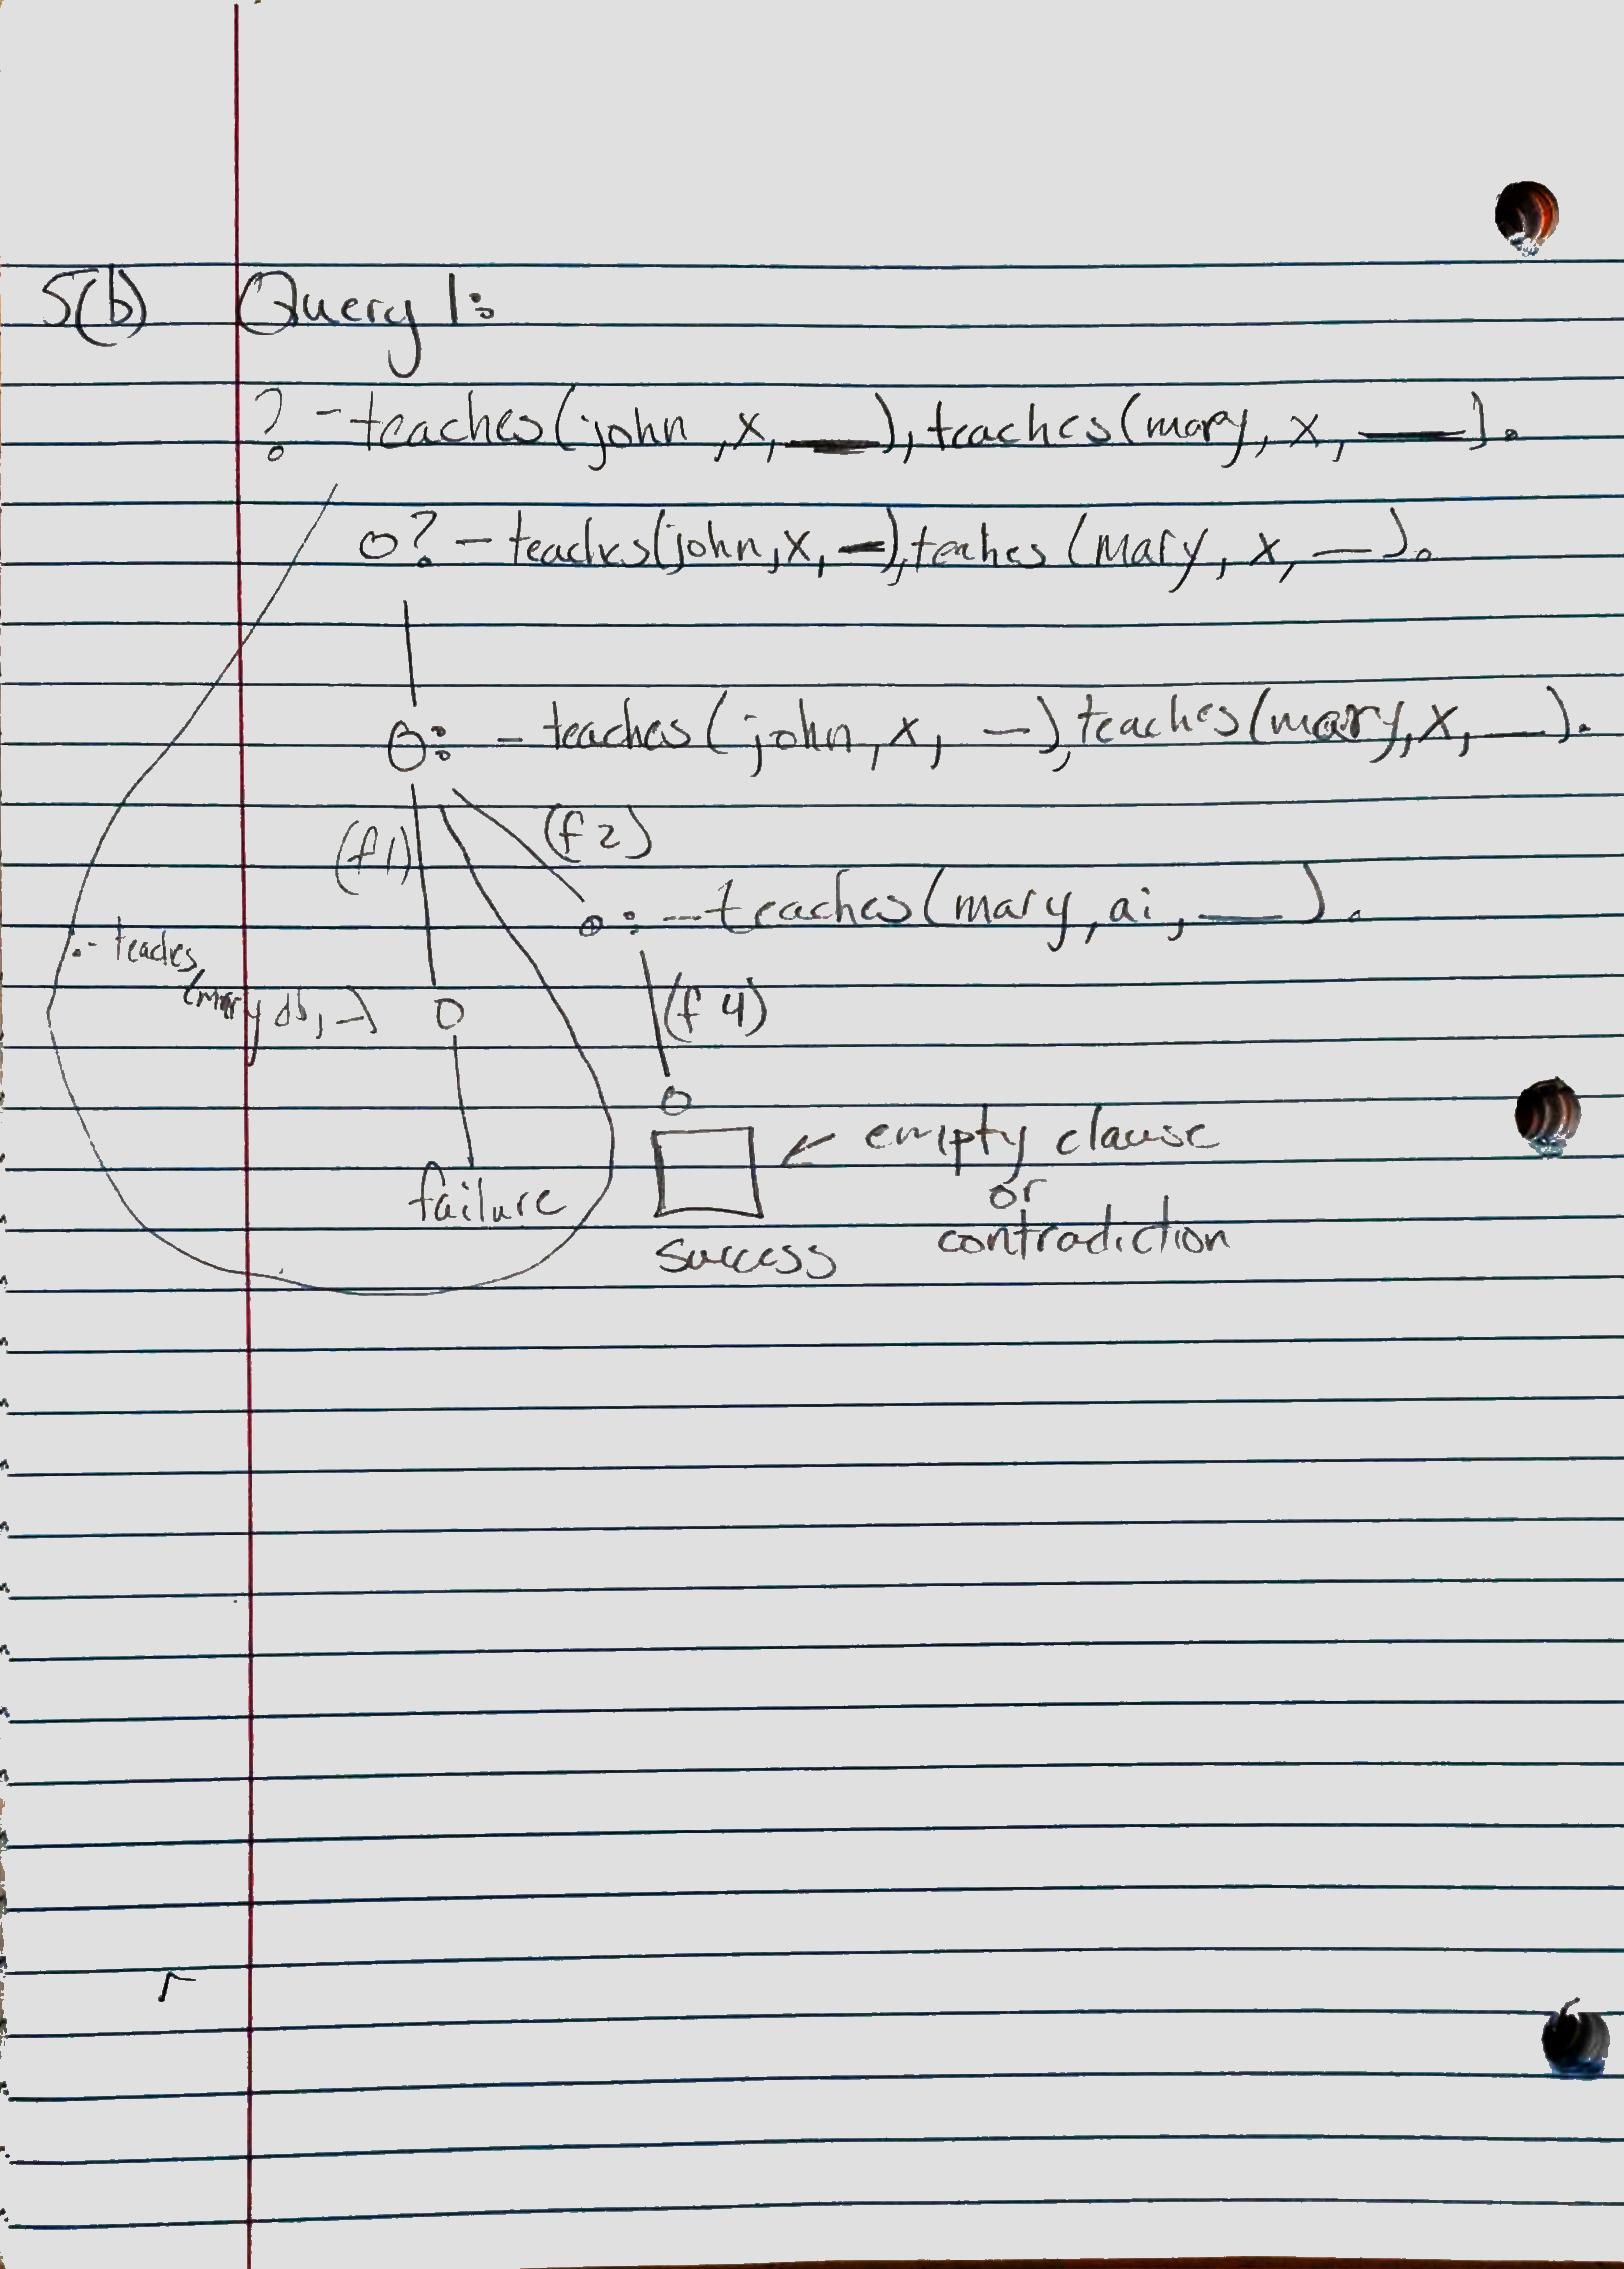 5(b) Query 1:
? - teaches(john ,x, __), teaches(mary, x, __).
o? - teaches(john,x, _),teahes (mary, x, _).
o: - teaches(john,x, _), teaches(mary,x, _).
(f1) (f 2)
o: - teaches(mary,ai, __).
:- teaches
(mary db, _) o (f 4)
o
← empty clause
failure or
success contradiction